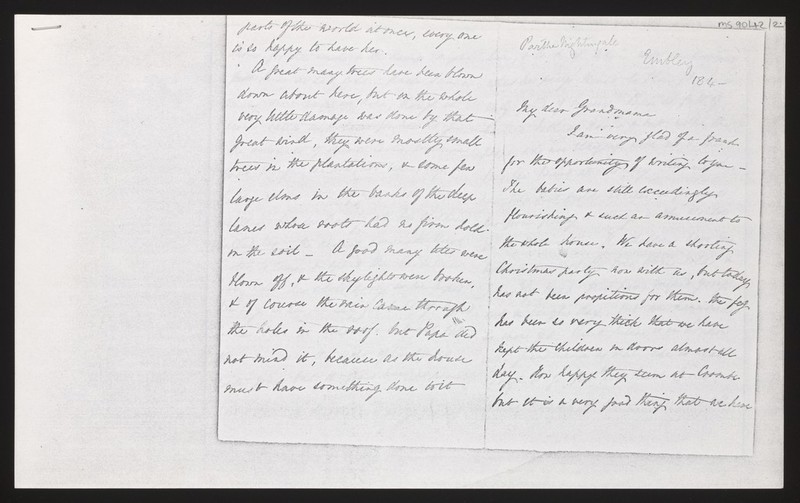 parts of the world at once, every one
is so happy to have her.
A great many trees have been blown
down about here, but on the whole
very little damage was done by that
great wind, they were mostly small
trees in the plantations, & some few
large elms in the banks of the deep
lanes whose roots had no firm hold
on the soil _ A good many tiles were
blown off, & the skylights were broken,
& of course the rain came through
the holes in the roof. but Papa did
not mind it, because as the house
must have something done to it
MS 9042/2
Parthe Nightingale
Embley
184-
My dear Grandmama
I am very glad of a frank
for the opportunity of writing to you _
The babies are still exceedingly
flourishing & such an amusement to
the whole house. We have a shooting
Christmas party now with us, but today
has not been propitious for them. the fog
has been so very thick that we have
kept the children in doors almost all
day. How happy they seem at Coombe
but it is a very good thing that we have